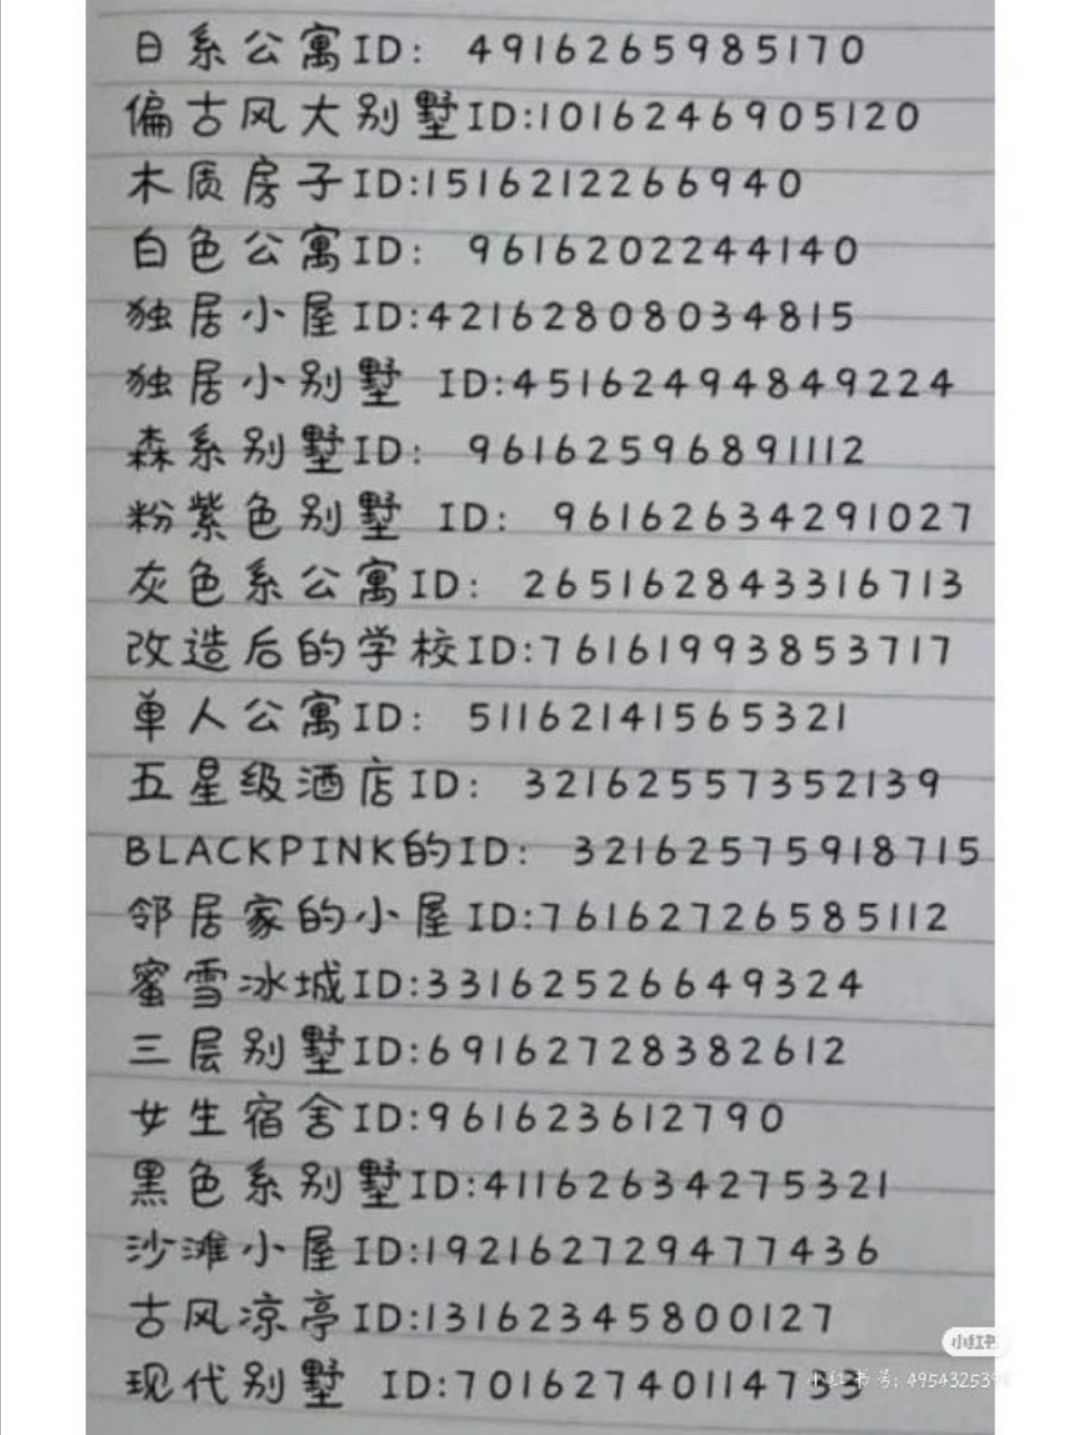 日系公寓ID: 4916265985170
偏古风大别墅ID:1016246905120
木质房子ID:1516212266940
白色公寓ID: 9616202244140
独居小屋ID:42162808034815
独居小别墅 ID:45162494849224
森系别墅ID: 96162596891112
粉紫色别墅 ID: 96162634291027
灰色系公寓ID: 265162843316713
改造后的学校ID:76161993853717
单人公寓ID: 51162141565321
五星级酒店ID: 32162557352139
BLACKPINK的ID: 32162575918715
邻居家的小屋ID:76162726585112
蜜雪冰城ID:33162526649324
三层别墅ID:69162728382612
女生宿舍ID:961623612790
黑色系别墅ID:41162634275321
沙滩小屋ID:192162729477436
古风凉亭ID:13162345800127
小红书
现代别墅 ID:70162740114733
小红书号: